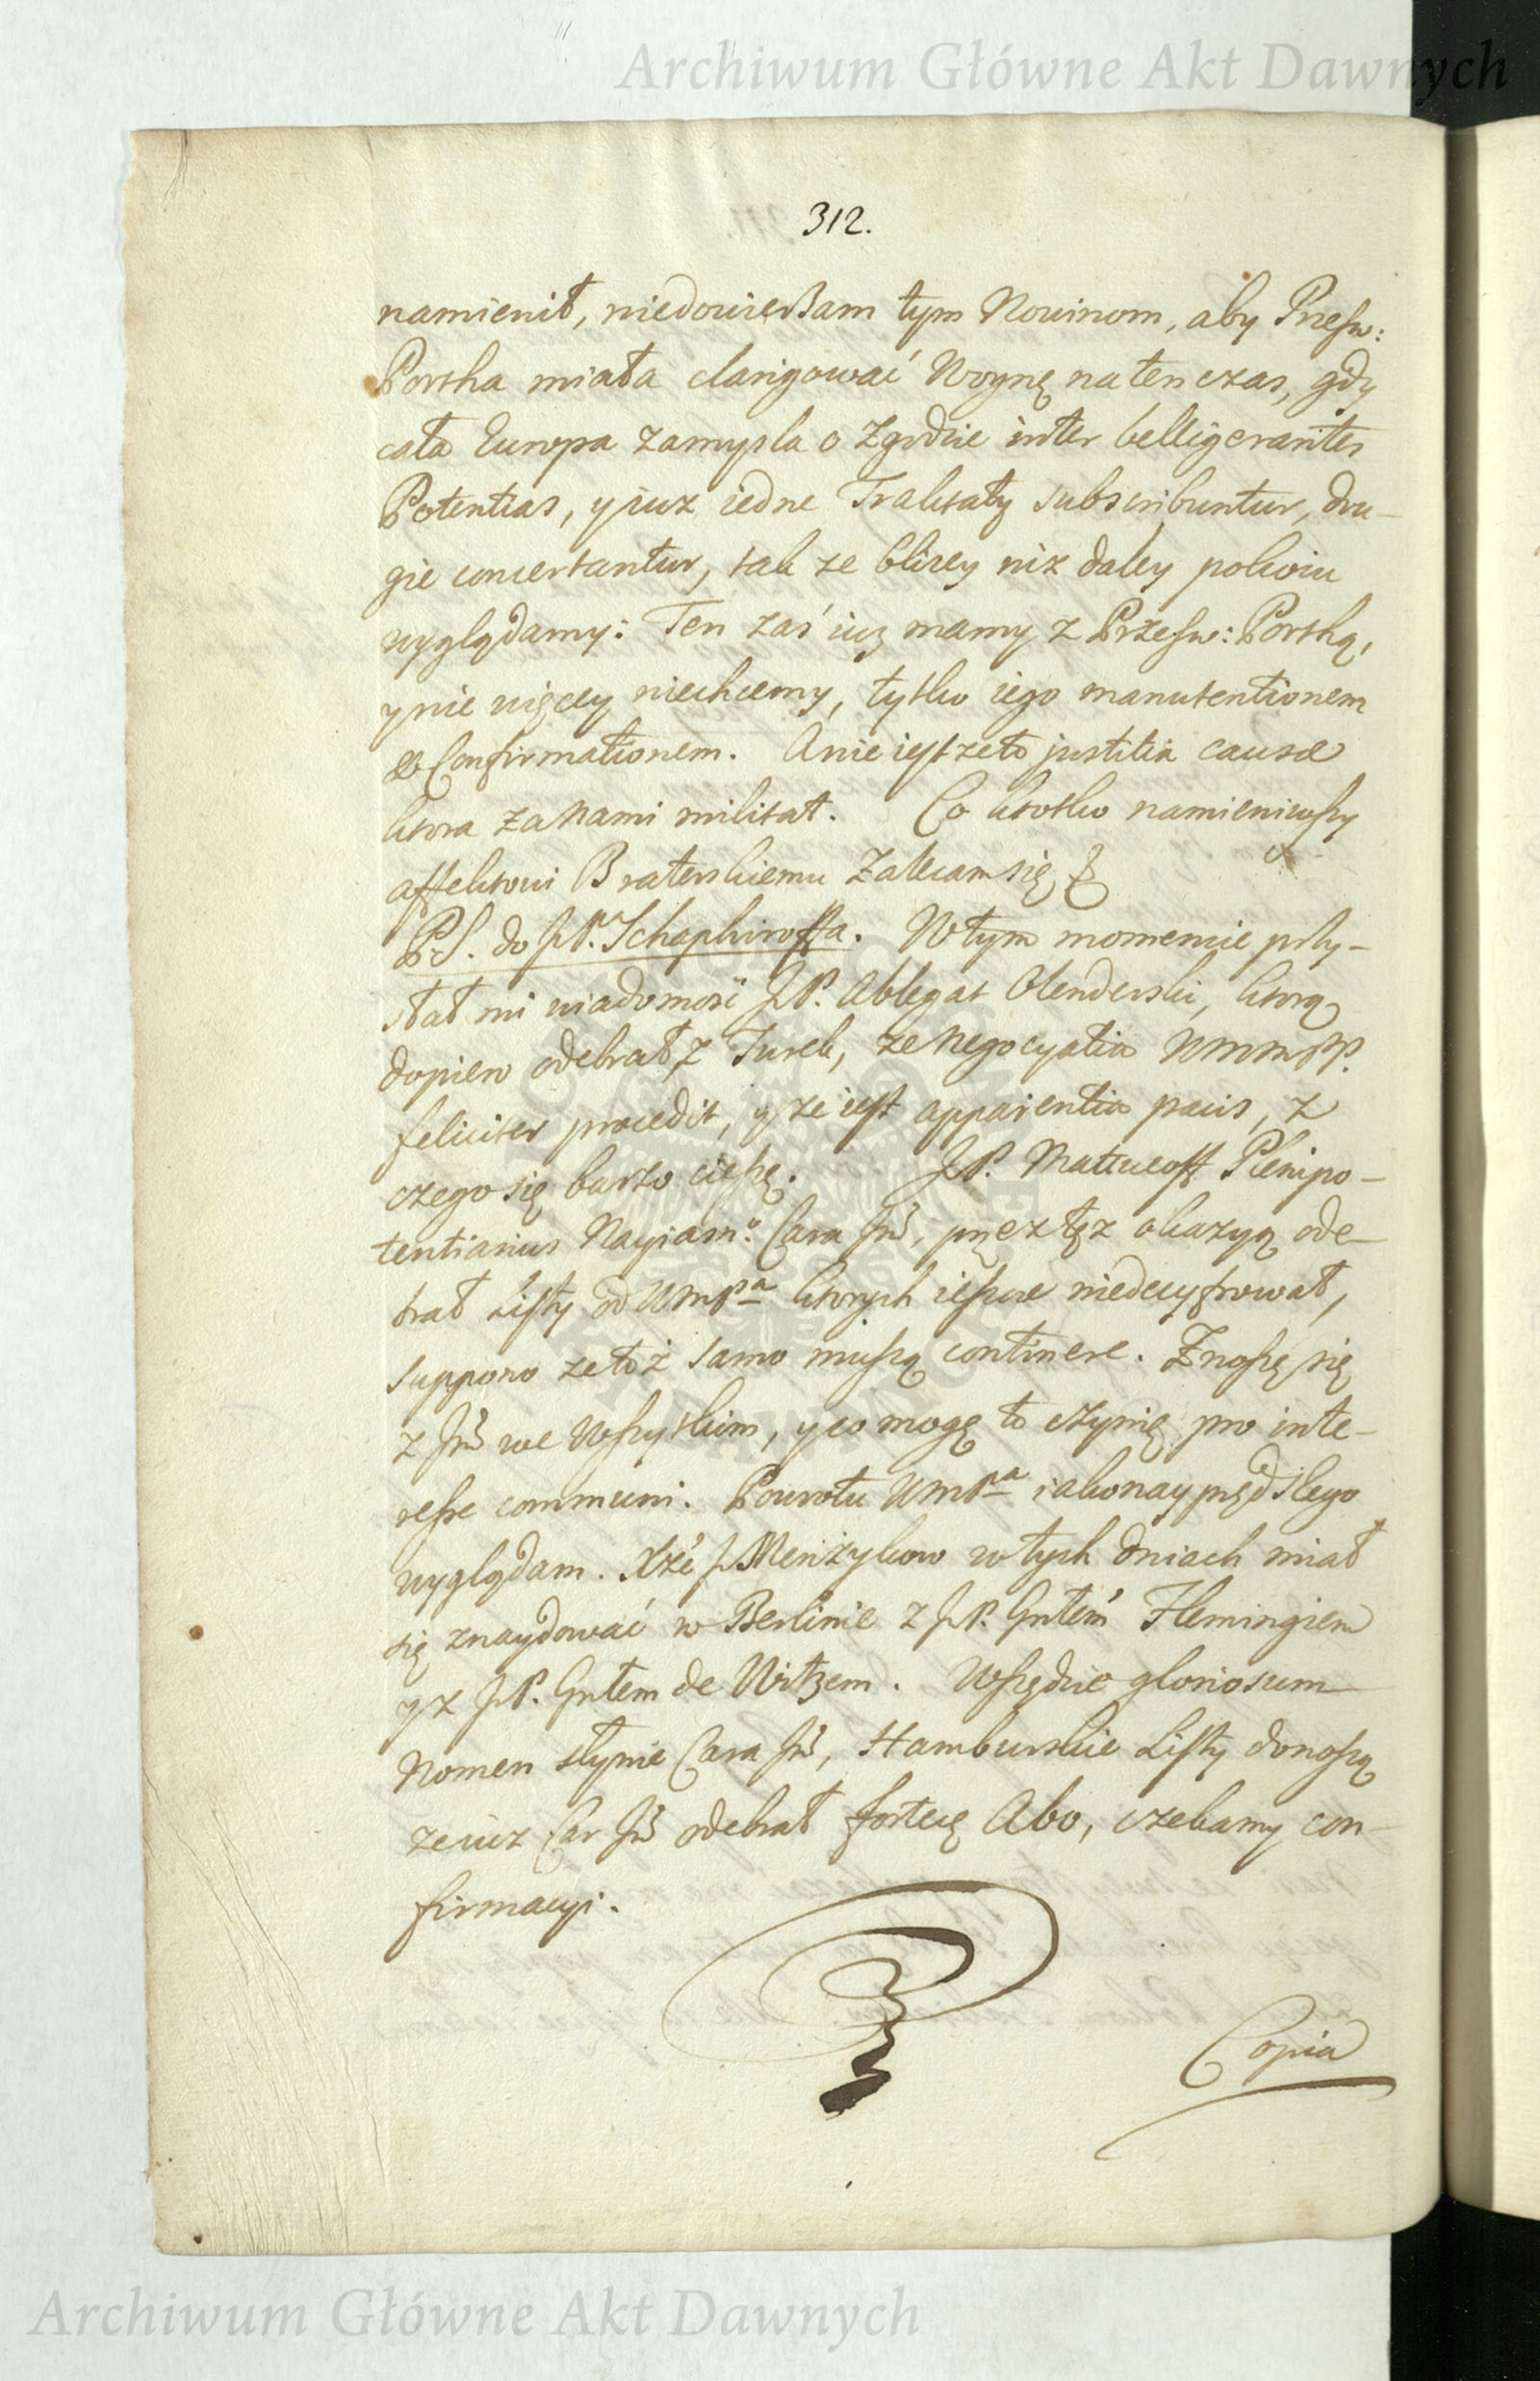 Archiwum Główne Akt Dawnych
312.
namienił, niedowierzam tym Nowinom, aby Przesw:
Portha miała clarigować Woynę natenczas, gdy
cała Europa zamysla o Zgodzie inter belligerantes
Potentias, y iuz iedne Traktaty subscribuntur, dru-
gie concertantur, tak ze blizey niz daley pokoiu
wyglądamy: Ten zaś iuz mamy z Przesw: Porthą,
y nie więcey niechcemy, tylko iego manutentionem
& Confirmationem. A nie iest zeto justitia causæ
ktora za nami militat. Co krotko namieniwszy
affektowi Braterskiemu Zalecam się
P.S. do JP. Schaphiroffa. W tym momencie przy-
słał mi wiadomość JP. Ablegat Olenderski, ktorą
dopiero odebrał z Turek, ze negocyatia WMMPP.
feliciter procedit, y ze iest apparentia pacis, z
czego się barzo cieszę. JP. Mattueoff Plenipo-
tentiarius Nayiasn: Cara Jmś, przez tęz okazyą ode-
brał Listy od WMPa ktorych ieszcze niedecyfrował,
suppono ze toż samo muszą continere. Znoszę się
z Jmś we wszystkim, y co mogę to czynię pro inte-
resse communi. Powrotu WMPa iako nayprędszego
wyglądam. Xżę J Menżykow w tych dniach miał
się znaydować w Berlinie z JP. Gnłem Flemingiem
y z JP. Gnłem de Witzem. Wszędzie gloriosum
Nomen słynie Cara Jmś, Hamburskie Listy donoszą
ze iuz Car Jmś odebrał fortecę Abo, czekamy con-
firmacyi.
Copia
Archiwum Główne Akt Dawnych